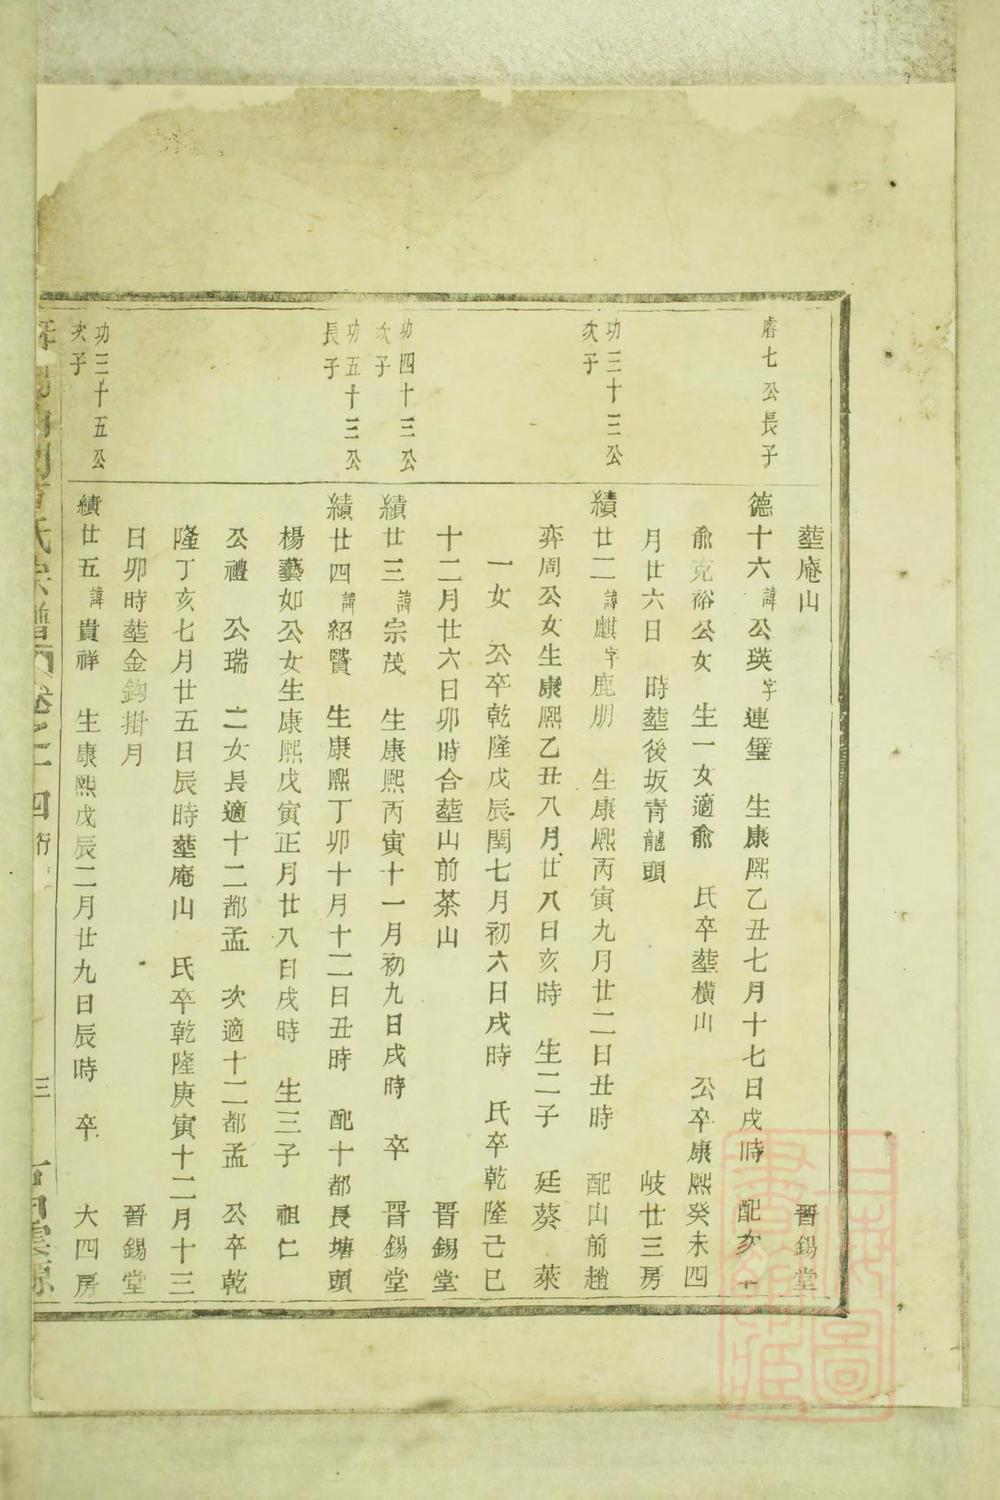 塟庵山　晉錫堂
睿七公長子
德十六諱公瑛字連璧　生康熈乙丑七月十七日戌時　配亥十
俞克裕公女　生一女適俞　氏卒塟横山　公卒康熈癸未四
月廿六日　時塟後坂青龍頭　岐廿三房
功三十三公
次子
績廿二諱麒字鹿朋　生康熈丙寅九月廿二日丑時　配山前趙
弈周公女生康熈乙丑八月廿八日亥時　生二子　廷葵　萊
一女　公卒乾隆戊辰閏七月初六日戌時　氏卒乾隆己巳
十二月廿六日卯時合塟山前茶山　晉錫堂
功四十三公
次子
績廿三諱宗茂　生康熈丙寅十一月初九日戌時　卒　晉錫堂
功五十三公
長子
績廿四諱紹賢　生康熈丁卯十月十二日丑時　配十都長塘頭
楊藝如公女生康熈戊寅正月廿八日戌時　生三子　祖仁
公禮　公瑞　二女長適十二都孟　次適十二都孟　公卒乾
隆丁亥七月廿五日辰時塟庵山　氏卒乾隆庚寅十二月十三
日卯時塟金鈎掛月　晉錫堂
功三十五公
次子
績廿五諱貴祥　生康熈戊辰二月廿九日辰時　卒　大四房
氏宗譜　卷之　四　行　三